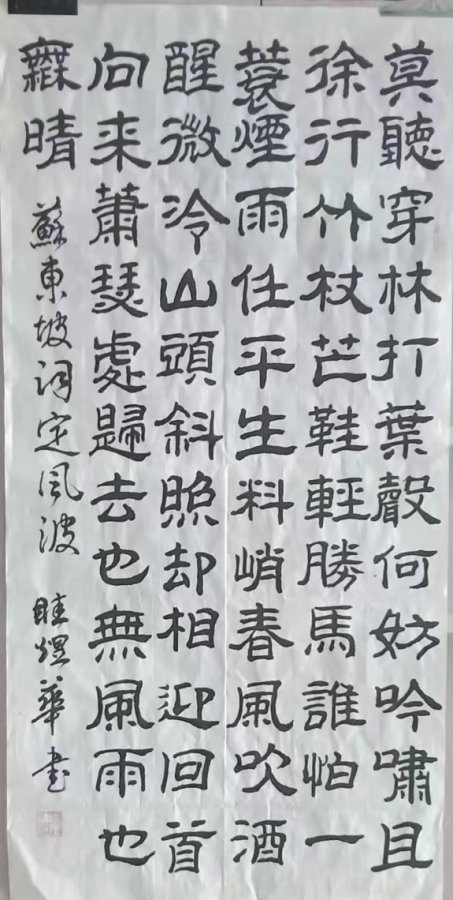 莫聽穿林打葉聲何妨吟嘯且
徐行竹杖芒鞋輕勝馬誰怕一
蓑煙雨任平生料峭春風吹酒
醒微冷山頭斜照却相迎回首
向来蕭瑟處歸去也無風雨也
無晴
蘇東坡词定風波 華书